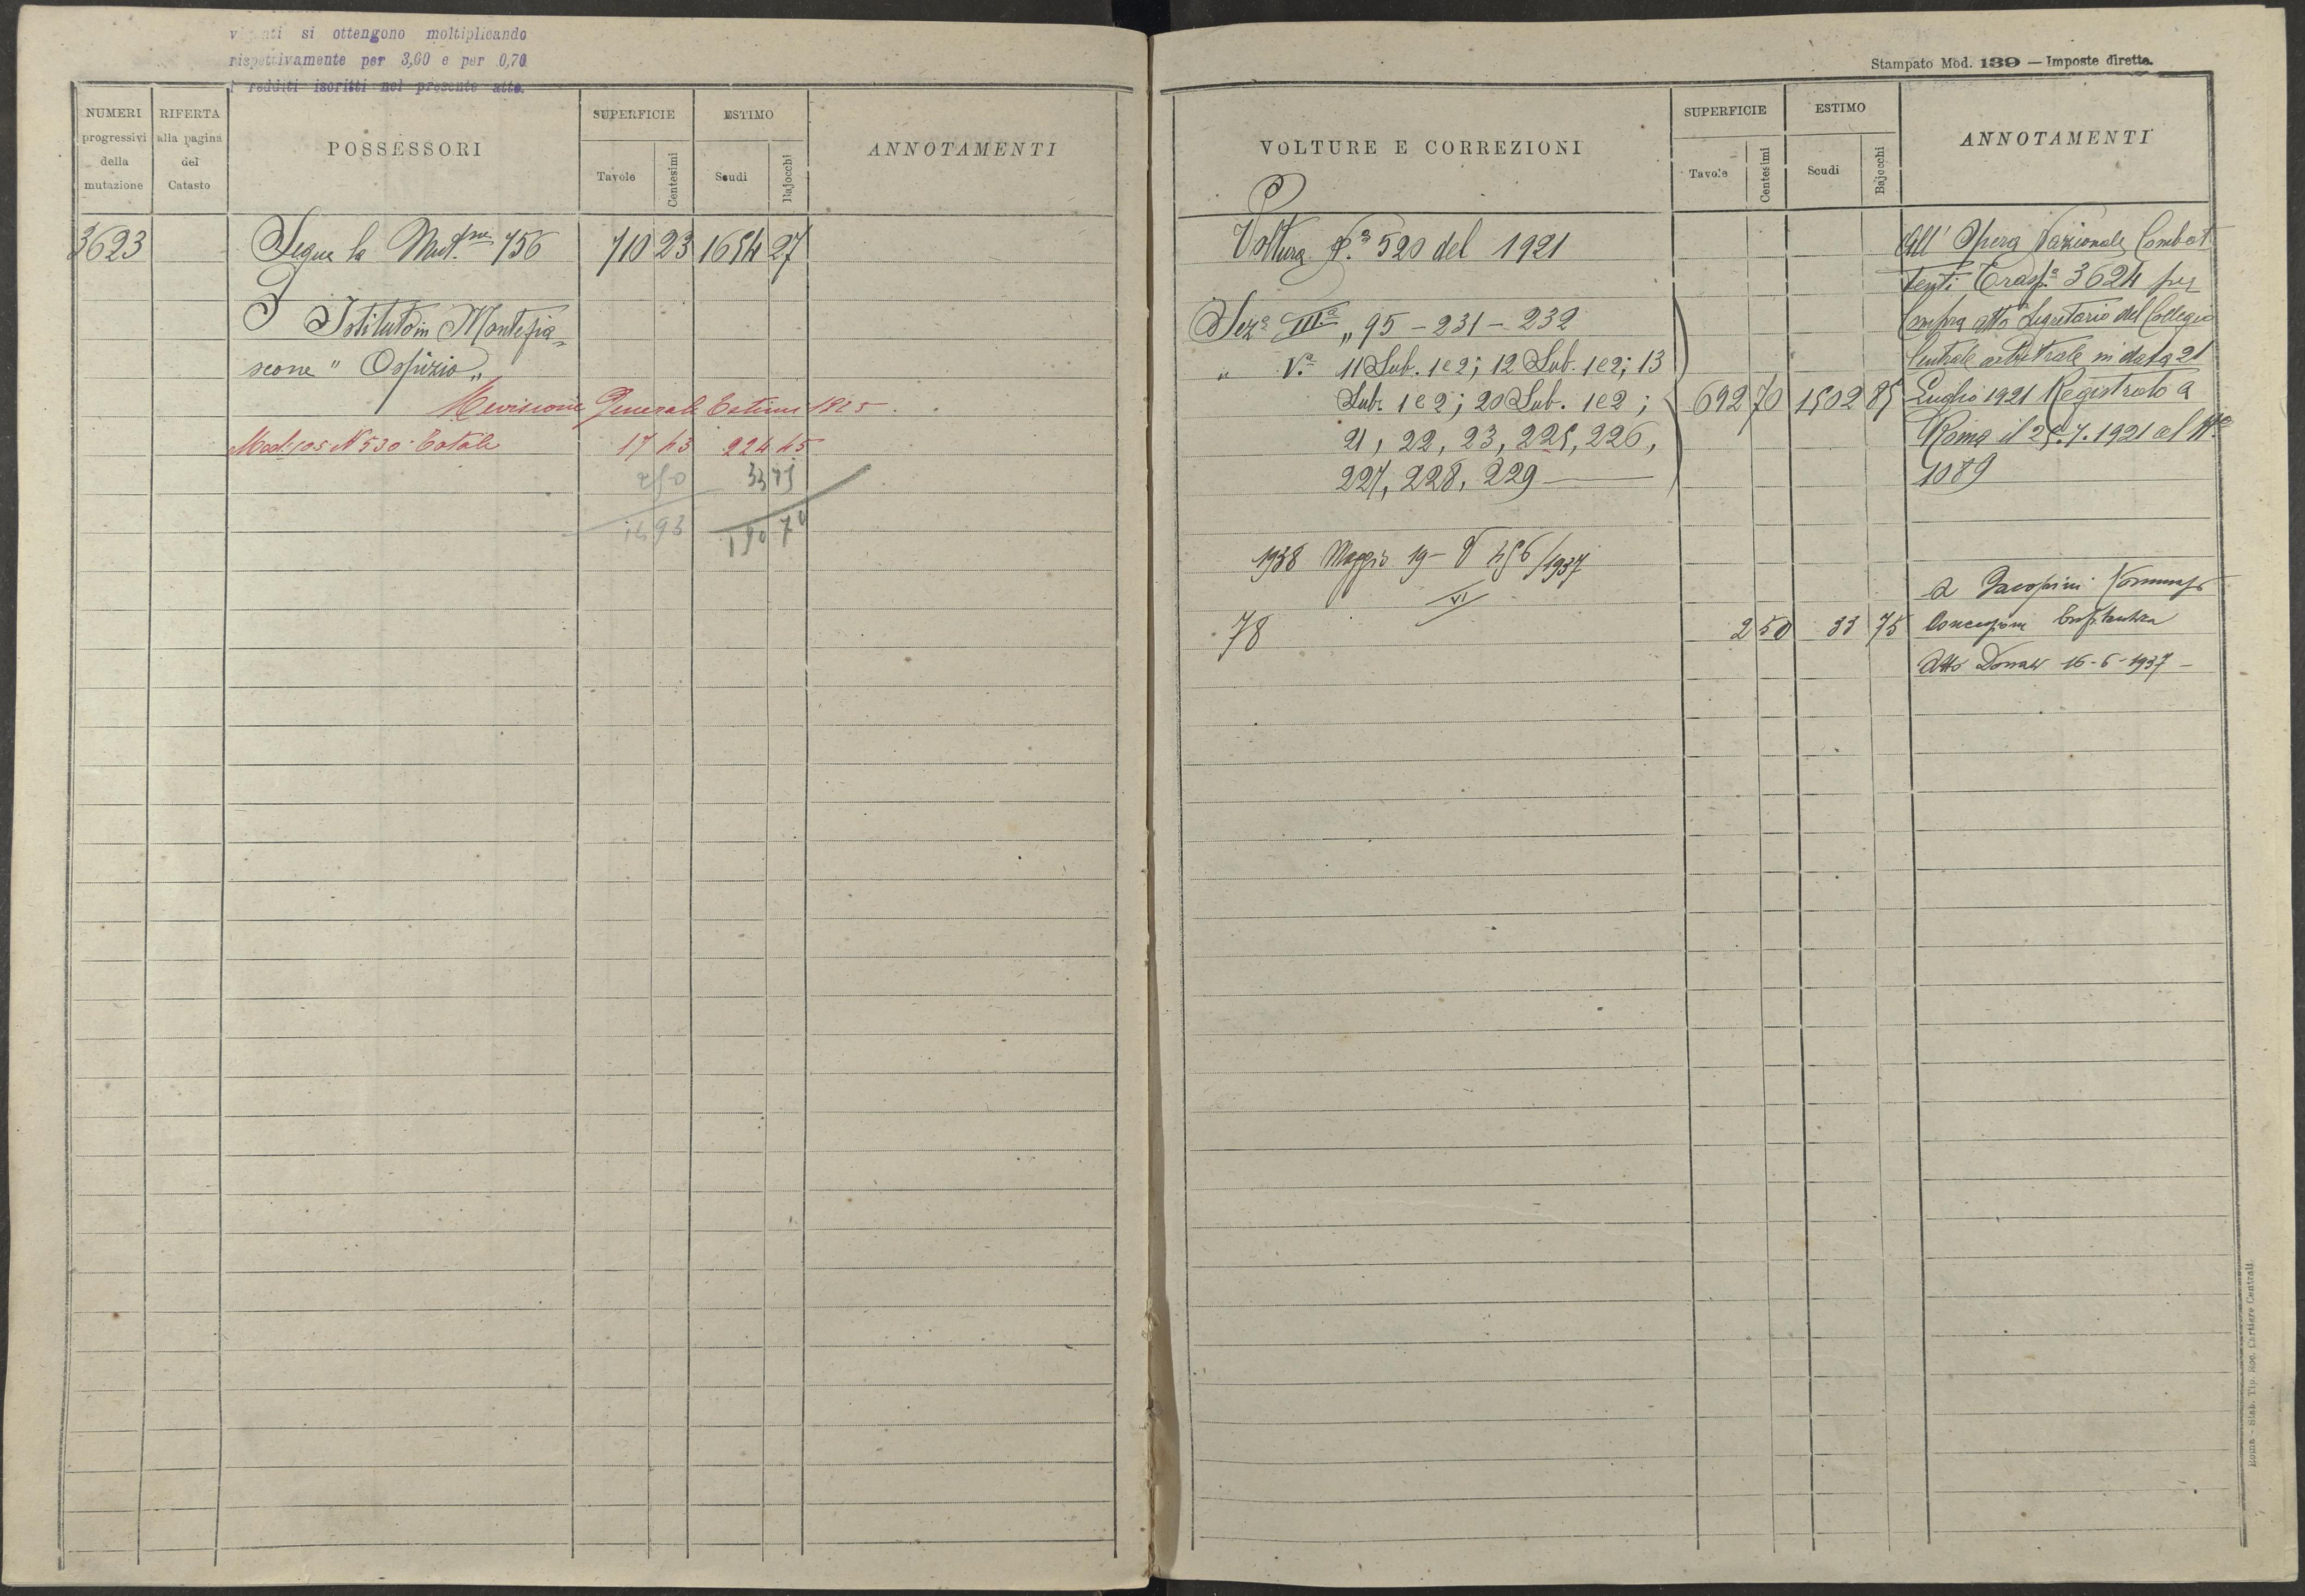 si ottengono moltiplicando
rispettivamente per 3,60 e per 0,70
i redditi iscritti nel presente atto.
NUMERI progressivi della mutazione
RIFERTA alla pagina del Catasto
POSSESSORI
SUPERFICIE
Tavole
Centesimi
ESTIMO
Scudi
Bajocchi
ANNOTAMENTI
3623 Segue la Mut.ne 756 710 23 1654 27
Istituto in Montefia-
scone " Ospizio "
Revisione Generale Estimi 1925
Mod. 105 N 530 Totale 17 43 224 45
250 33 75
14 93 190 70
Stampato Mod. 139 — Imposte dirette.
VOLTURE E CORREZIONI
SUPERFICIE
Tavole
Centesimi
ESTIMO
Scudi
Bajocchi
ANNOTAMENTI
Voltura N.º 520 del 1921
All' Opera Nazionale Combat
tenti Trasp.a 3624 per
Sez.a III.a " 95 - 231 - 232
Compra atto Segretario del Collegio
" V.a 11 Sub. 1 e 2; 12 Sub. 1 e 2; 13
Centrale arbitrale in data 21
Sub. 1 e 2; 20 Sub. 1 e 2; 692 70 1502 85
Luglio 1921 Registrato a
21, 22, 23, 225, 226,
Roma il 25.7.1921 al N.º
227, 228, 229
1089
1938 Maggio 19 - 456/1937
VI
a Jacopini
78 2 50 33 75
Concessione
Atto 16-6-1937
Roma - Stab. Tip. Soc. Cartiere Centrali.